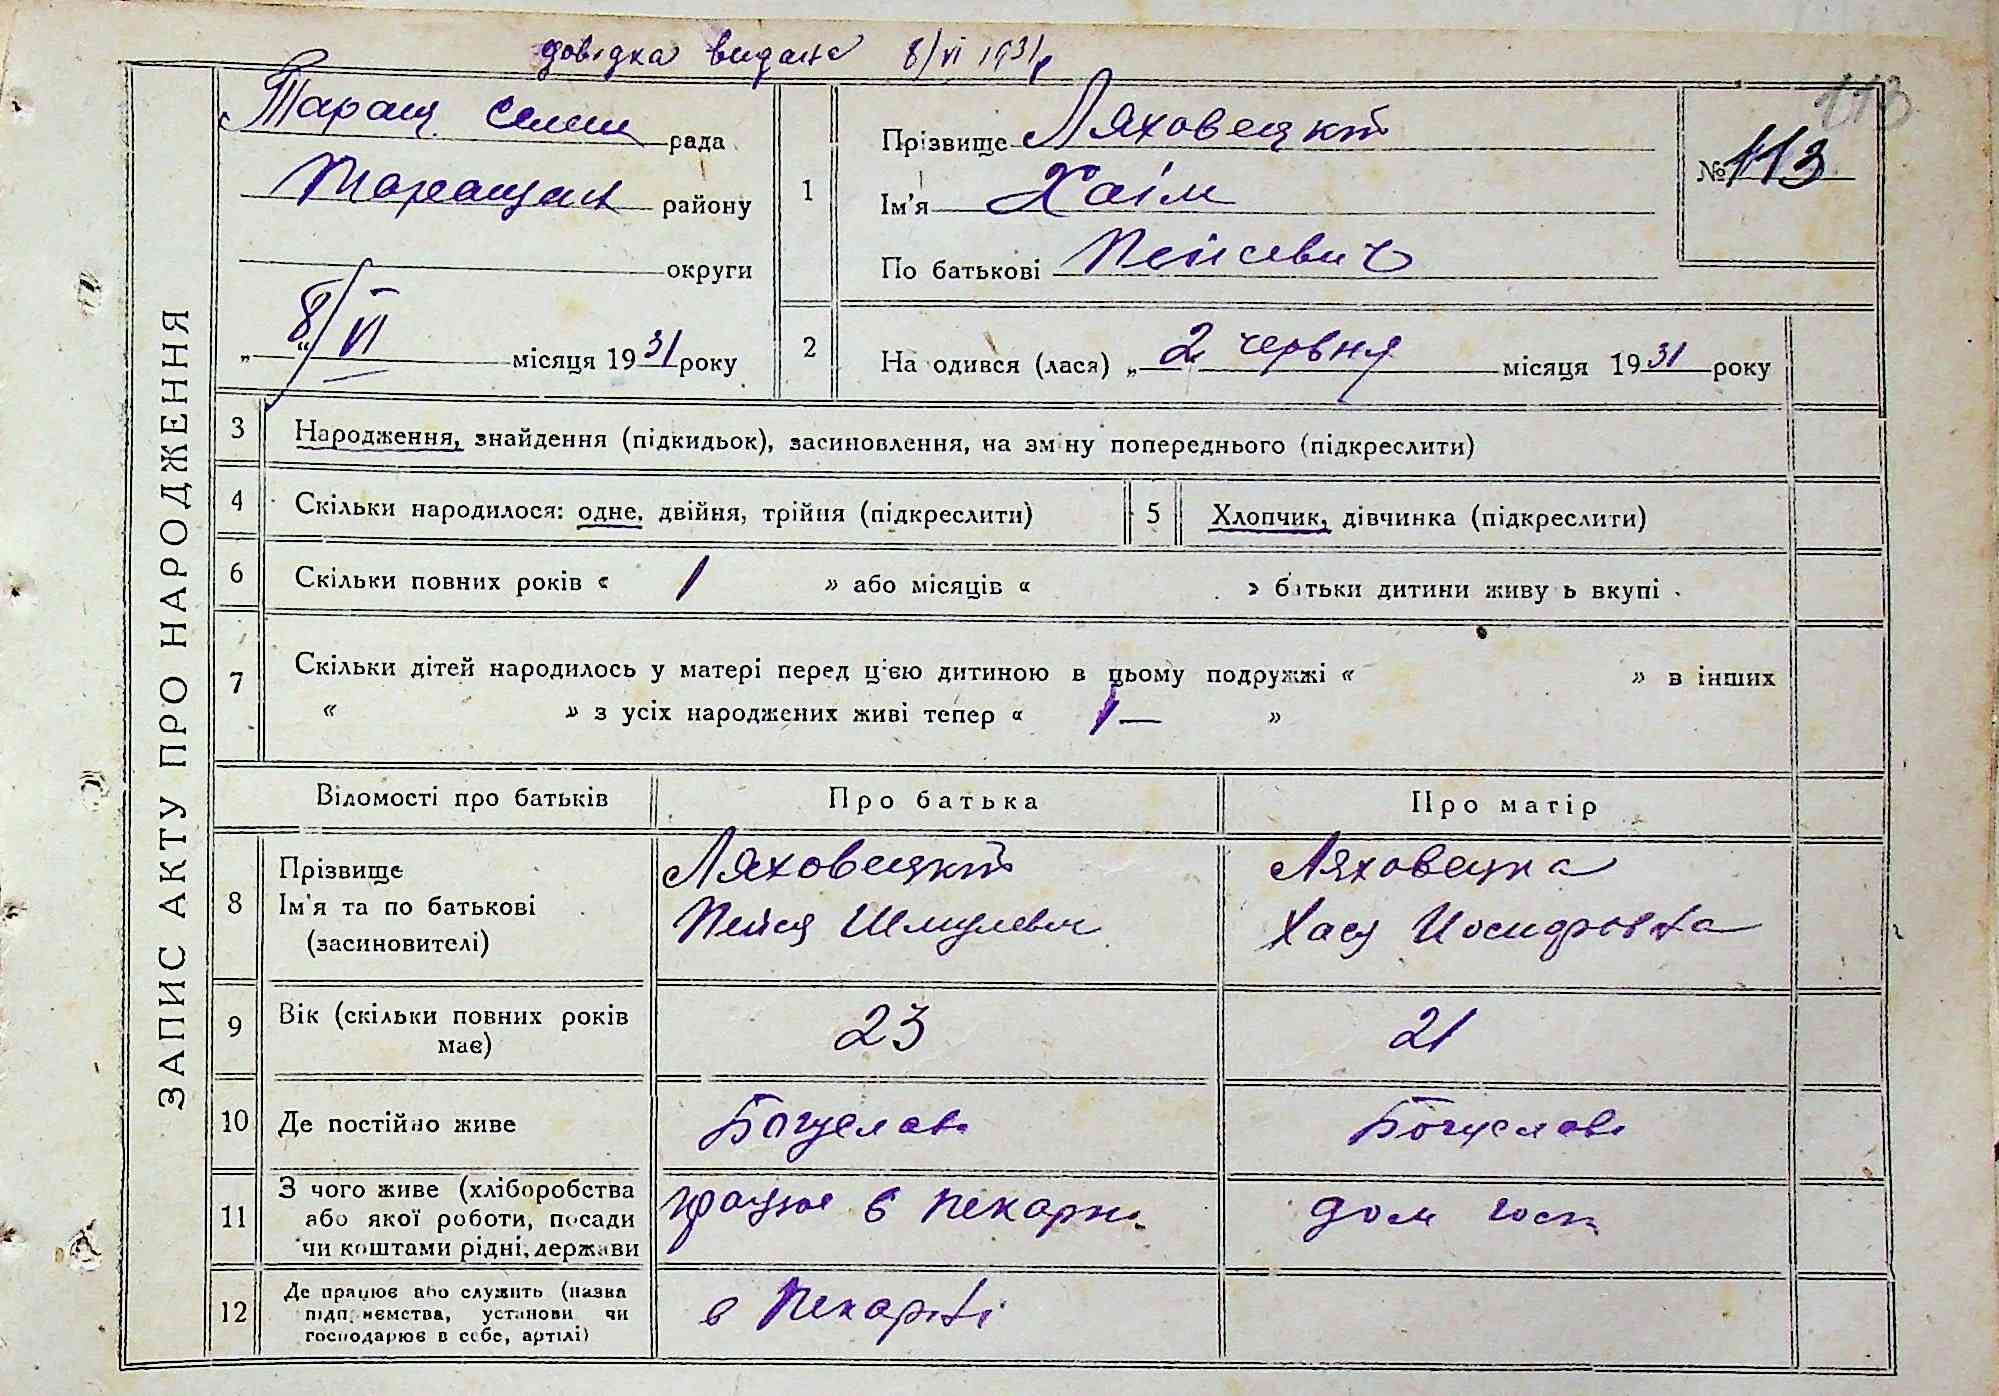 довідка видана 8/VI 1931 р
113
ЗАПИС АКТУ ПРО НАРОДЖЕННЯ
Таращ селищ рада
Таращан району
округи
„ 8/VI “ місяця 1931 року
1
Прізвище Ляховецкий
Ім'я Хаім
По батькові Пейсевич
№ 113
2
На одився (лася) „ 2 червня місяця 1931 року
3 Народження, знайдення (підкидьок), засиновлення, на зміну попереднього (підкреслити)
4 Скільки народилося: одне, двійня, трійня (підкреслити)
5 Хлопчик, дівчинка (підкреслити)
6 Скільки повних років « 1 » або місяців « » батьки дитини живу ь вкупі
7 Скільки дітей народилось у матері перед ц'єю дитиною в цьому подружжі « » в інших
« » з усіх народжених живі тепер « 1— »
Відомості про батьків Про батька Про матір
8 Прізвище Ляховецкий Ляховецка
Ім'я та по батькові Пейся Шмулевич Хася Иосифовна
(засиновителі)
9 Вік (скільки повних років 23 21
має)
10 Де постійно живе Богуслав Богуслав
11 З чого живе (хліборобства
або якої роботи, посади працює в пекарні дом госп
чи коштами рідні, держави
12 Де працює або служить (назва
підприємства, установи чи в Пекарні
господарює в себе, артілі)